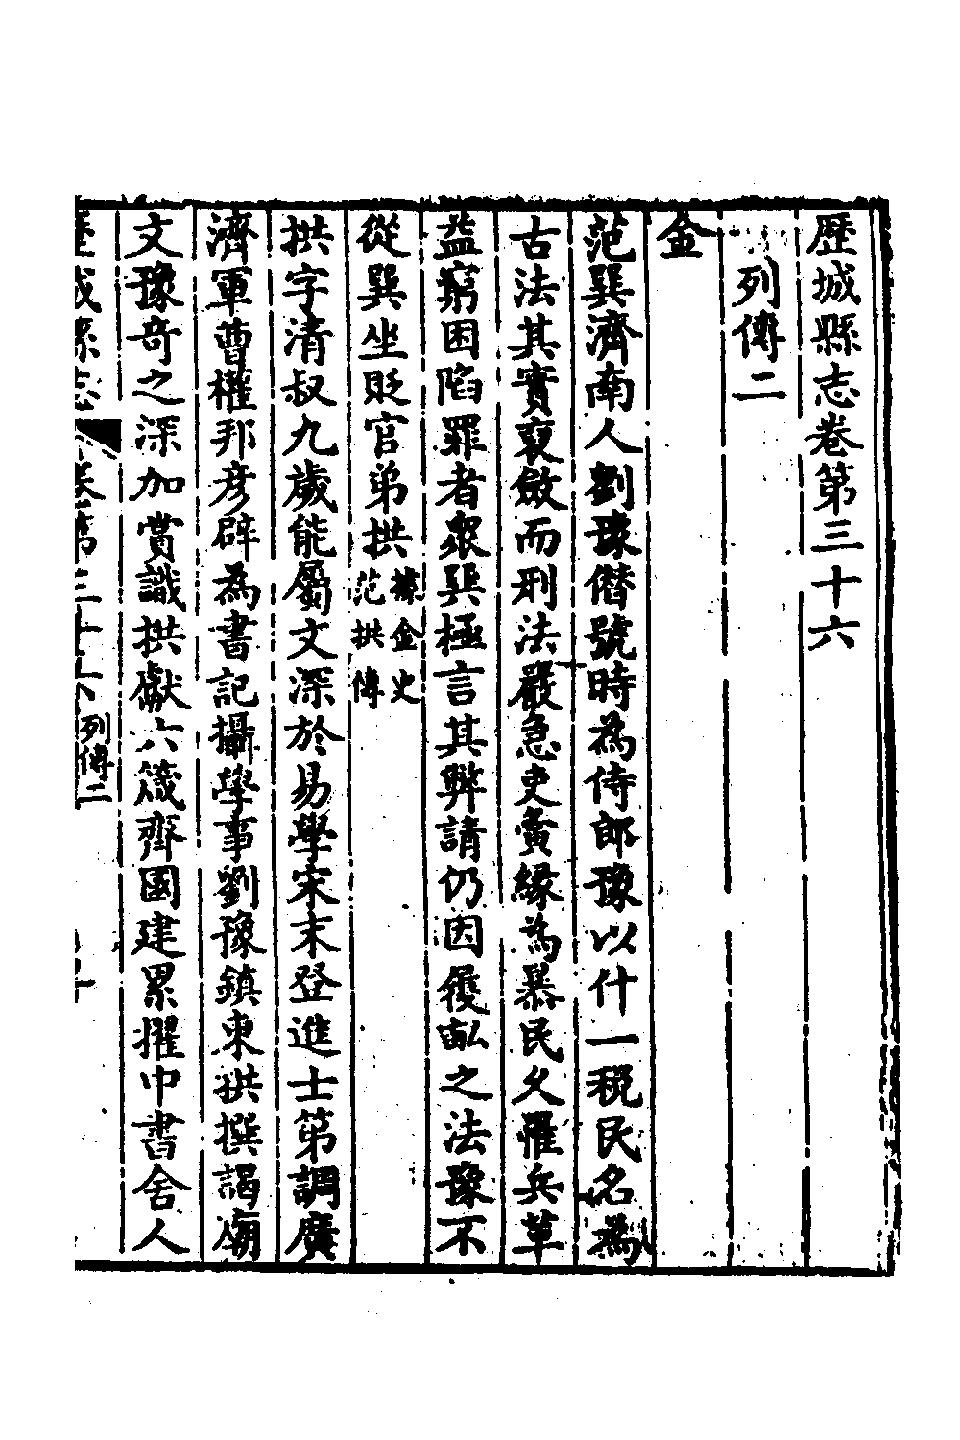 歷城縣志卷第三十六
列傳二
金
范巽濟南人劉豫僭號時為侍郎豫以什一稅民名為
古法其實裒斂而刑法嚴急吏夤緣為暴民久罹兵革
益窮困陷罪者衆巽極言其弊請仍因履畝之法豫不
從巽坐貶官弟拱據金史范拱傳
拱字清叔九歲能屬文深於易學宋末登進士第調廣
濟軍曹權邦彥辟為書記攝學事劉豫鎮東拱撰謁廟
文豫奇之深加賞識拱獻六箴齊國建累擢中書舍人
歷城縣志 卷第三十六 列傳二